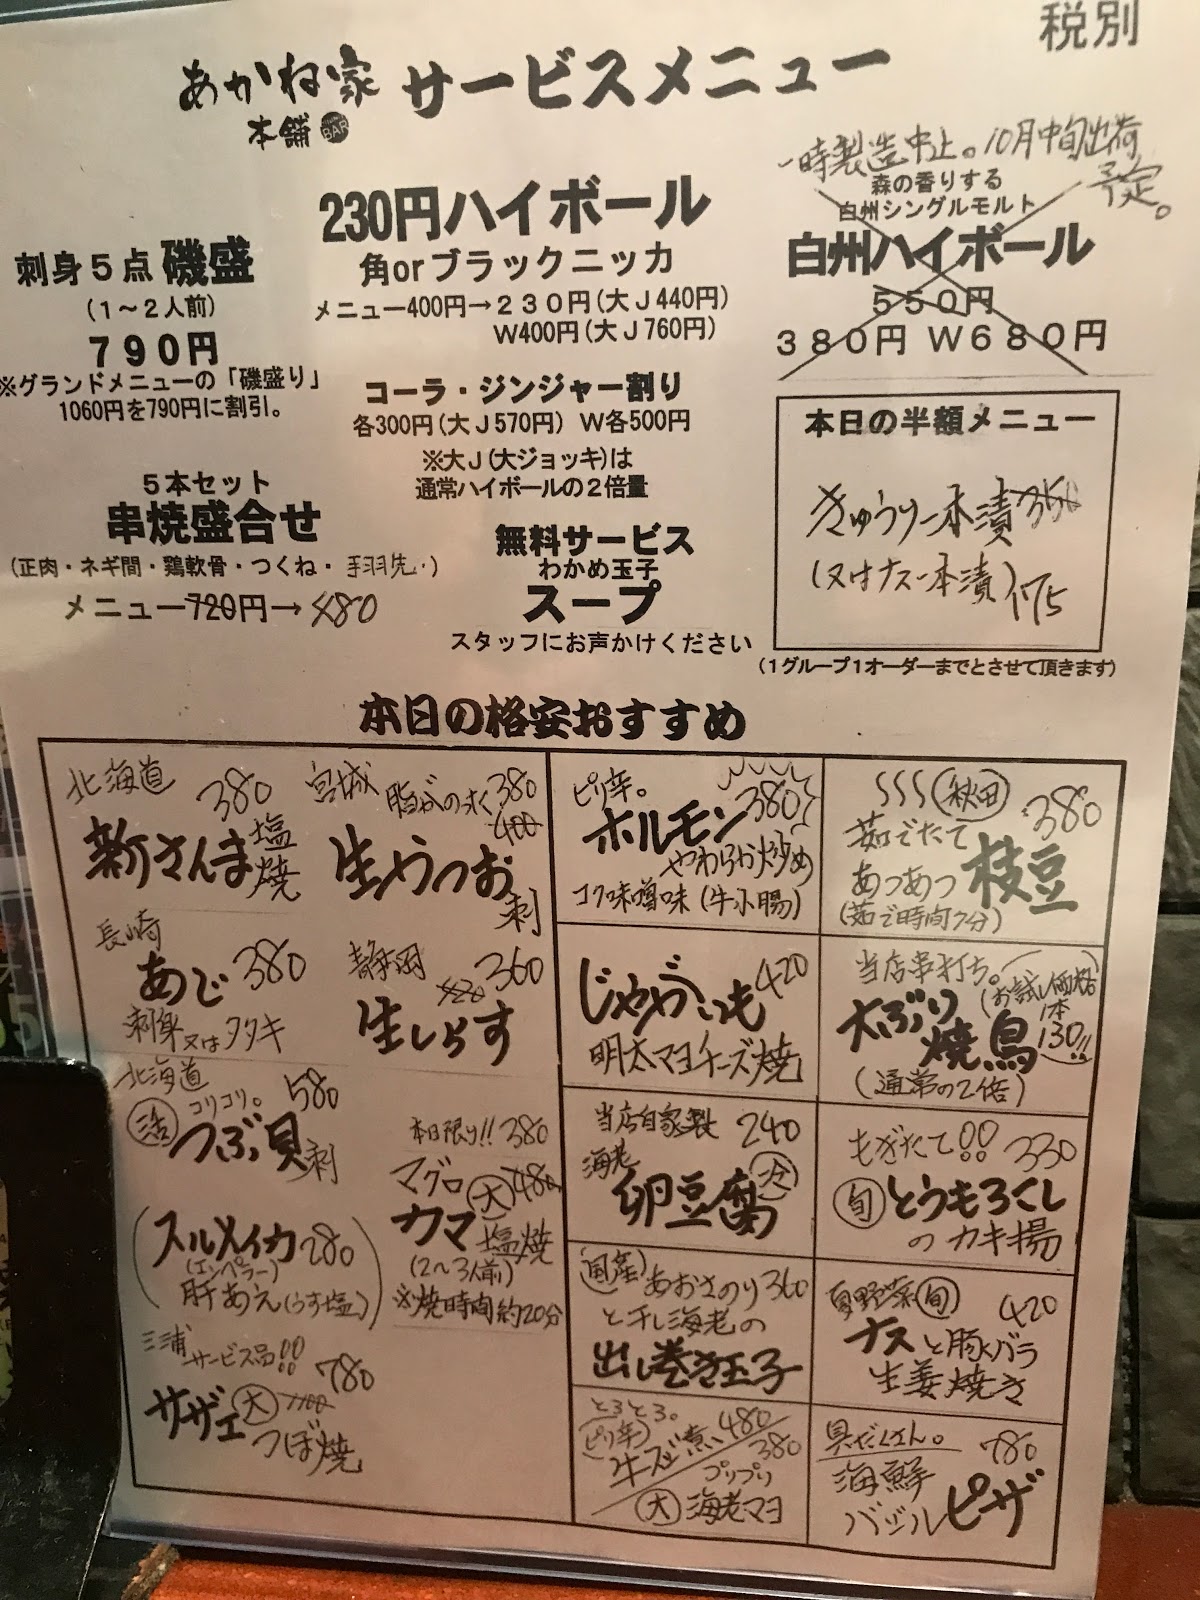 税別
あかね家 サービスメニュー
本舗 BAR
一時製造中止。10月中旬出荷
予定。
森の香りする
白州シングルモルト
白州ハイボール
550円
380円 W680円
230円ハイボール
角orブラックニッカ
メニュー400円→230円(大J440円)
W400円(大J760円)
刺身5点 磯盛
(1~2人前)
790円
※グランドメニューの「磯盛り」
1060円を790円に割引。
コーラ・ジンジャー割り
各300円(大J570円) W各500円
※大J(大ジョッキ)は
通常ハイボールの2倍量
5本セット
串焼盛合せ
(正肉・ネギ間・鶏軟骨・つくね・手羽先・)
メニュー720円→480
無料サービス
わかめ玉子
スープ
スタッフにお声かけください
本日の半額メニュー
きゅうり一本漬350
(又はナス一本漬)175
(1グループ1オーダーまでとさせて頂きます)
本日の格安おすすめ
北海道 380
新さんま塩焼
宮城 脂がのってく380
400
生かつお刺
長崎
あじ380
刺身又はタタキ
静岡 420 360
生しらす
北海道
活 コリコリ。 580
つぶ貝刺
本日限り!! 380
マグロ 大 480
カマ塩焼
(2~3人前)
※焼時間約20分
(スルメイカ280)
(エンペラー)
肝あえ(うす塩)
三浦 サービス品!! 780
サザエ 大 1100
つぼ焼
ピリ辛。
ホルモン380
やわらか炒め
コク味噌味(牛小腸)
じゃがいも420
明太マヨチーズ焼
当店自家製 240
海老
卵豆腐 冷
国産 あおさのり360
と干し海老の
出し巻き玉子
とろとろ。
(ピリ辛)
牛スジ煮い480
380
プリプリ
大 海老マヨ
秋田 380
茹でたて
あつあつ 枝豆
(茹で時間7分)
当店串打ち。
大ぶり焼鳥
(お試し価格
1本
130!!
(通常の2倍)
もぎたて!! 330
旬 とうもろこし
のカキ揚
夏野菜 旬 420
ナスと豚バラ
生姜焼き
具だくさん。 780
海鮮
バジルピザ